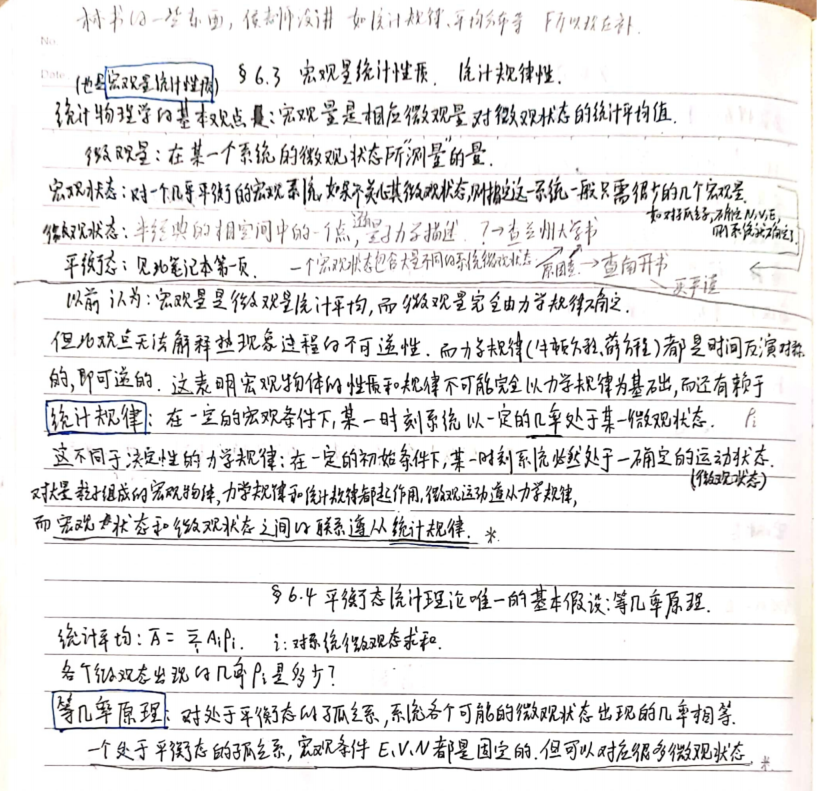 林书的一些东西，侯老师没讲 如统计规律、平均分布等 所以放在补.
No.
Date
(也是宏观量统计性质) § 6.3 宏观量统计性质. 统计规律性.
统计物理学的基本观点是：宏观量是相应微观量对微观状态的统计平均值.
微观量：在某一个系统的微观状态所“测量”的量.
宏观状态：对一个几乎平衡的宏观系统,如果不关心其微观状态,则描述这一系统一般只需很少的几个宏观量.
如对孤立系,确定N,V,E,
则系统就确定了
微观状态：半经典的相空间中的一个点, 量子力学描述. ?→查兰州大学书
平衡态：见此笔记本第一页. 一个宏观状态包含大量不同的系统微观状态 原因 →查南开书
以前认为：宏观量是微观量统计平均,而微观量完全由力学规律确定.
但此观点无法解释热现象过程的不可逆性. 而力学规律(牛顿方程、薛方程)都是时间反演对称
的,即可逆的. 这表明宏观物体的性质和规律不可能完全以力学规律为基础,而还有赖于
统计规律：在一定的宏观条件下,某一时刻系统以一定的几率处于某一微观状态. ρᵢ
这不同于决定性的力学规律：在一定的初始条件下,某一时刻系统必然处于一确定的运动状态.
(微观状态)
对大量粒子组成的宏观物体,力学规律和统计规律都起作用,微观运动遵从力学规律,
而宏观状态和微观状态之间的联系遵从统计规律. *
§ 6.4 平衡态统计理论唯一的基本假设：等几率原理.
统计平均：Ā = Σᵢ Aᵢρᵢ. i：对系统微观态求和.
各个微观态出现的几率ρᵢ是多少?
等几率原理：对处于平衡态的孤立系,系统各个可能的微观状态出现的几率相等.
一个处于平衡态的孤立系,宏观条件 E、V、N都是固定的.但可以对应很多微观状态. *